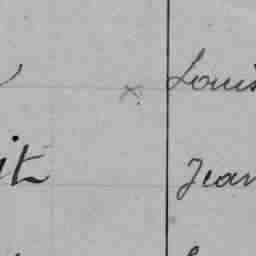 x Louis
it Jean